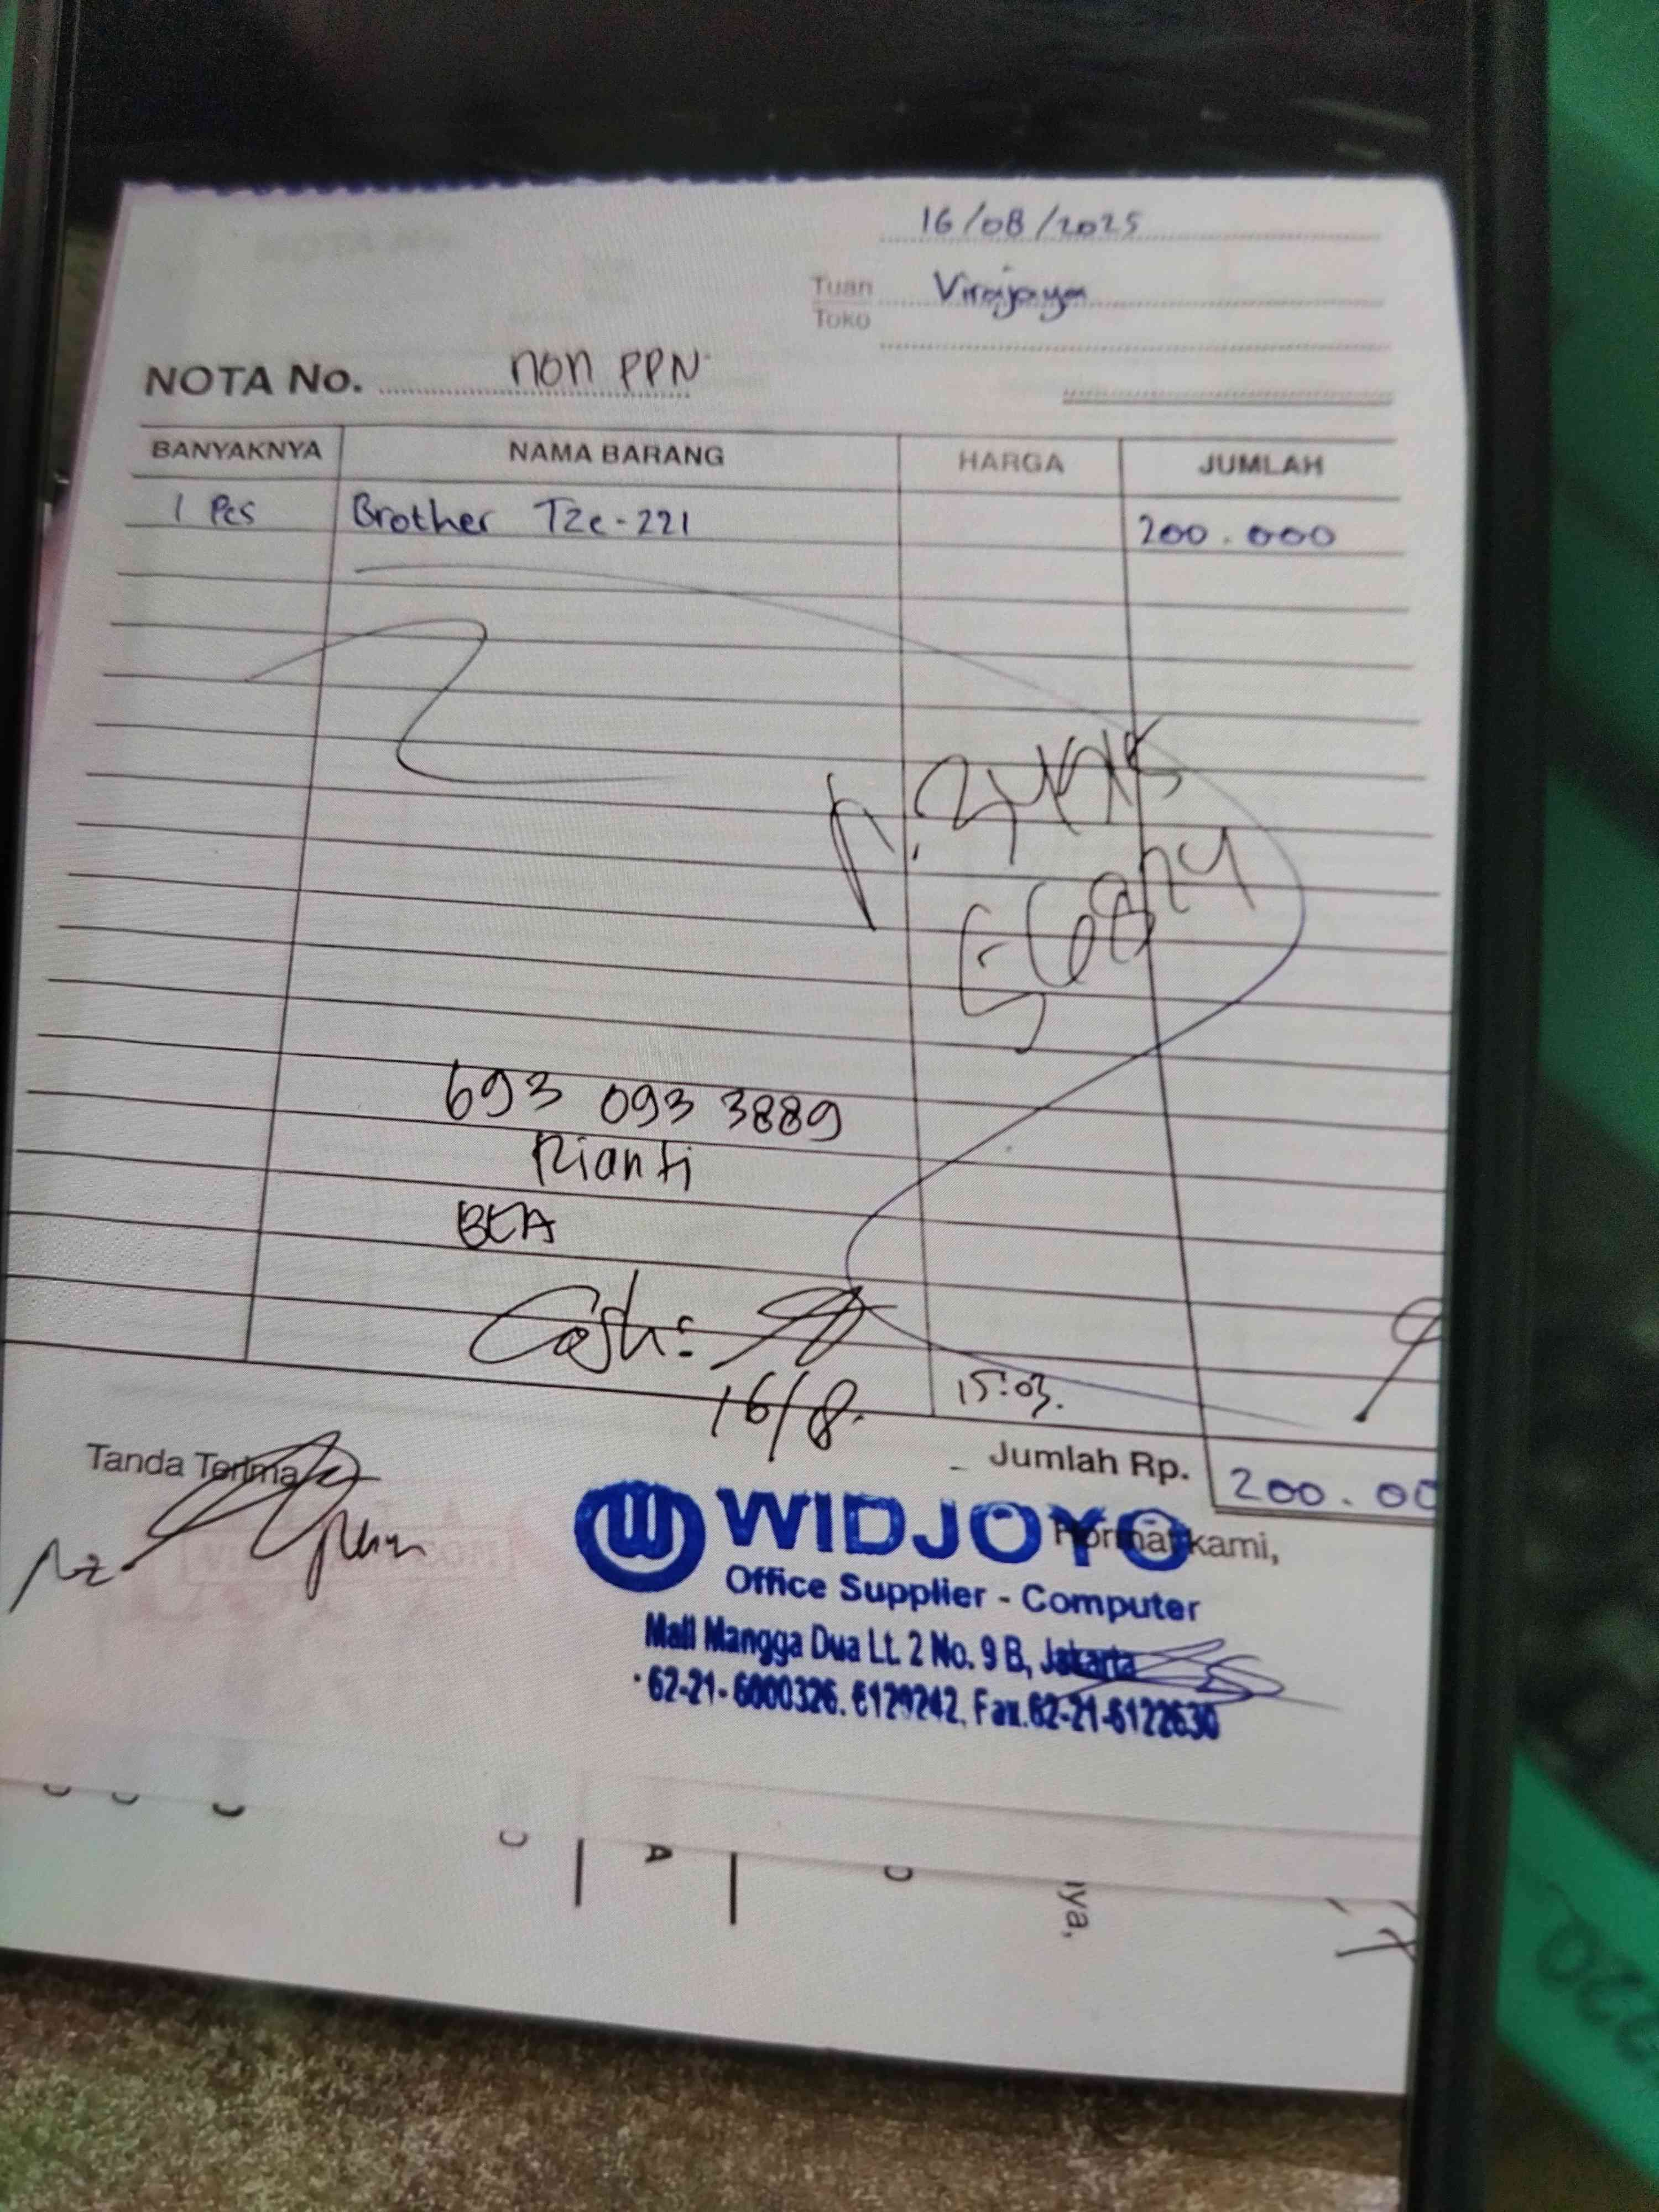 16/08/2025
Tuan Virajaya
Toko
NOTA No. non PPN
BANYAKNYA NAMA BARANG HARGA JUMLAH
1 Pcs Brother Tze-221 200.000
693 093 3889
Rianti
BCA
Cash:
16/8
15:03.
Tanda Terima
Jumlah Rp. 200.00
Hormat kami,
WIDJOYO
Office Supplier - Computer
Mall Mangga Dua Lt. 2 No. 9 B, Jakarta
62-21-6000326. 6129242, Fax.62-21-6122630
A
iya,